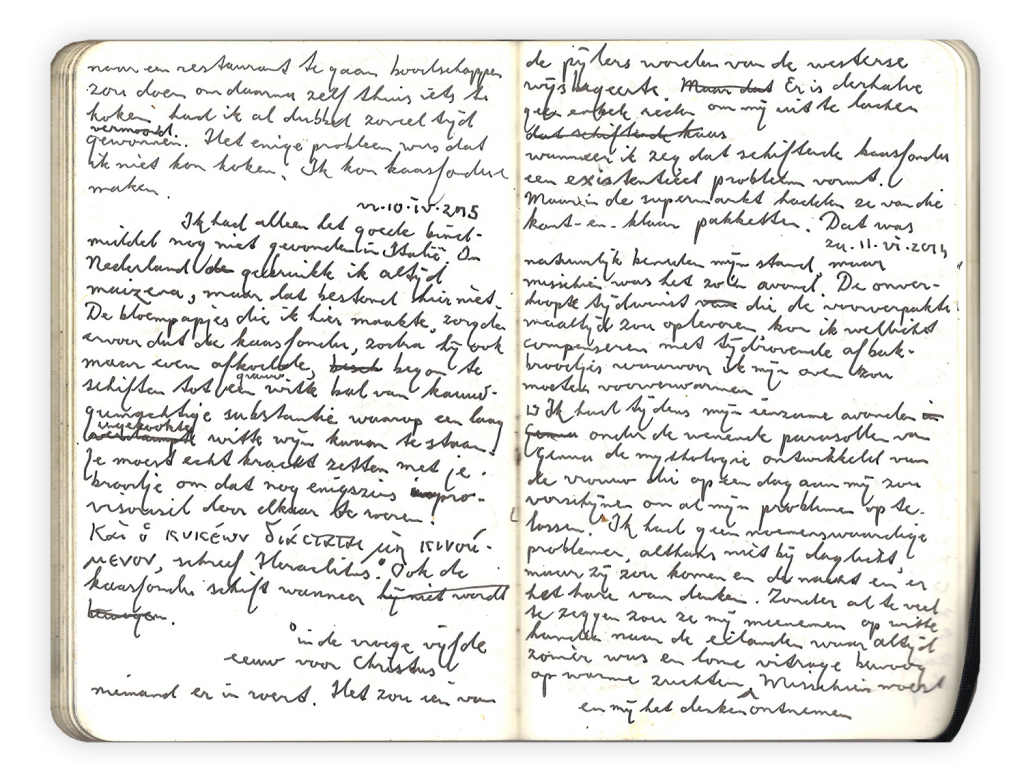 naar een restaurant te gaan boodschappen
zou doen om daarna zelf thuis iets te
koken, had ik al dubbel zoveel tijd
vermoord.
gewonnen. Het enige probleem was dat
ik niet kon koken. Ik kon kaasfondue
maken.
vr.10.IV.2015
Ik had alleen het goede bind-
middel nog niet gevonden in Italië. In
Nederland gebruikte ik altijd
maizena, maar dat bestond hier niet.
De bloempapjes die ik hier maakte, zorgden
ervoor dat de kaasfondue, zodra hij ook
maar even afkoelde, begon te
schiften tot een witte bal van kauw-
grauw
gumachtige substantie waarop een laag
ingekookte
witte wijn kwam te staan.
Je moest echt kracht zetten met je
broodje om dat nog enigszins pro-
visorisch door elkaar te roeren.
Καὶ ὁ κυκεὼν διίσταται μὴ κινού-
μενον, schreef Heraclitus° Ook de
kaasfondue schift wanneer hij niet wordt
bewogen.
° in de vroege vijfde
eeuw voor Christus
niemand er in roert. Het zou één van
de pijlers worden van de westerse
wijsbegeerte. Maar dat Er is derhalve
geen enkele reden om mij uit te lachen
dat schiftende kaas
wanneer ik zeg dat schiftende kaasfondue
een existentieel probleem vormt.
Maar in de supermarkt hadden ze van die
kant-en-klaar pakketten. Dat was
natuurlijk beneden mijn stand, maar
misschien was het zo'n avond. De onver-
hoopte tijdwinst van die de voorverpakte
maaltijd zou opleveren kon ik wellicht
compenseren met tijdrovende afbak-
broodjes waarvoor ik mijn oven zou
moeten voorverwarmen.
Ik had tijdens mijn eenzame avonden in
Genua onder de wenende parasollen van
Genua de mythologie ontwikkeld van
de vrouw die op een dag aan mij zou
verschijnen om al mijn problemen op te
lossen. Ik had geen noemenswaardige
problemen, althans niet bij daglicht,
maar zij zou komen en de nacht en er
het hare van denken. Zonder al te veel
te zeggen zou ze mij meenemen op witte
handen naar de eilanden waar altijd
zomer was en lome vitrage bewoog
op warme zuchten. Misschien moest
en mij het denken ontnemen